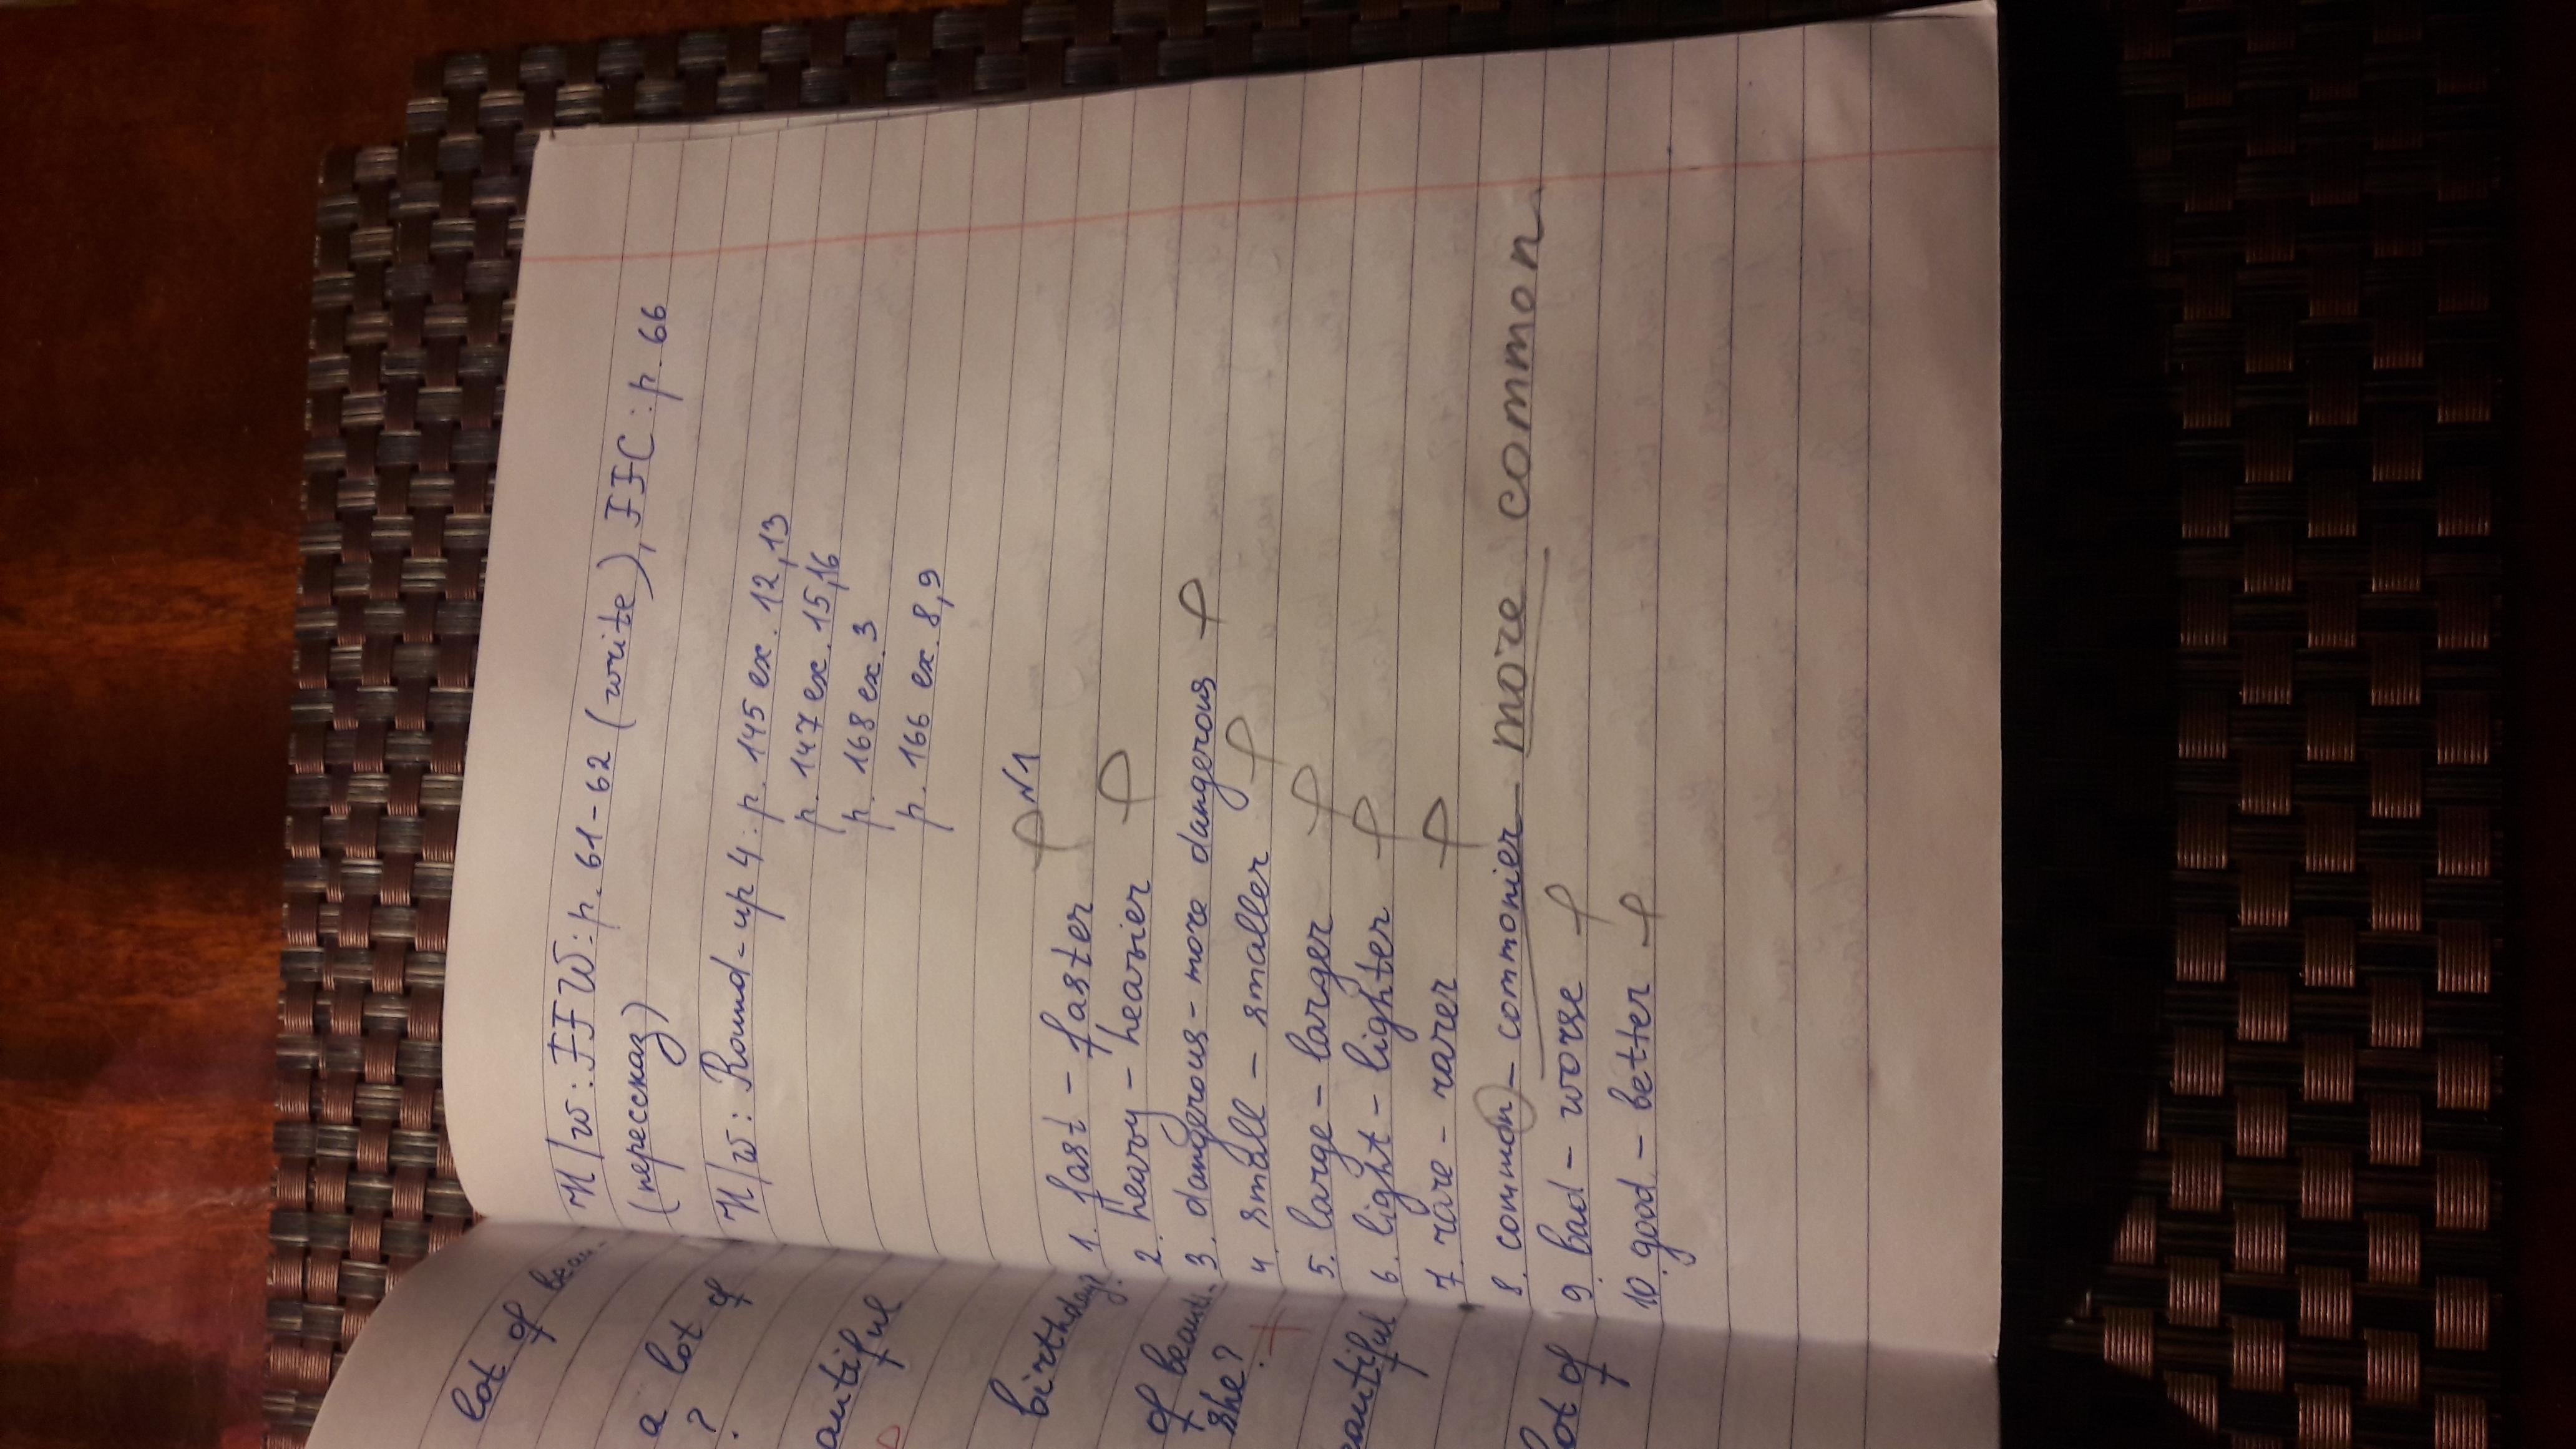 H/w: FFW: p. 61-62 (write), FFC: p. 66
(перессказ)
H/w: Round-up 4: p. 145 ex. 12, 13
p. 147 ex. 15, 16
p. 168 ex. 3
p. 166 ex. 8, 9
N1
1. fast - faster
2. heavy - heavier
3. dangerous - more dangerous
4. small - smaller
5. large - larger
6. light - lighter
7. rare - rarer
8. common - commonier more common
9. bad - worse
10. good - better
lot of beau-
a lot of
?
autiful
birthday?
of beauti-
she?
eautiful
lot of